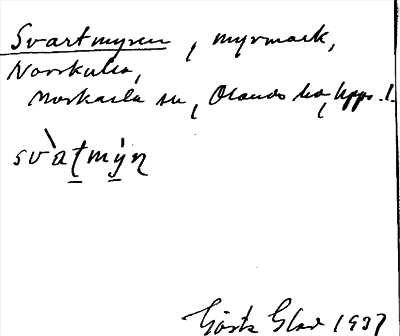 Svartmyren, myrmark,
Norrkulla,
Morkarla sn, Olands hd, Upps. l.
svàt̲mý̲n
Gösta Glad 1937